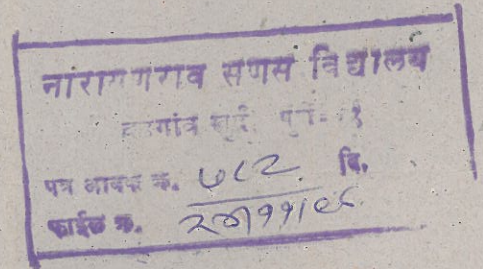 नारायणराव सणस विद्यालय
वडगांव खुर्द, पुणे-
पत्र आवक क्र. ७८२ दि.
फाईल क्र.